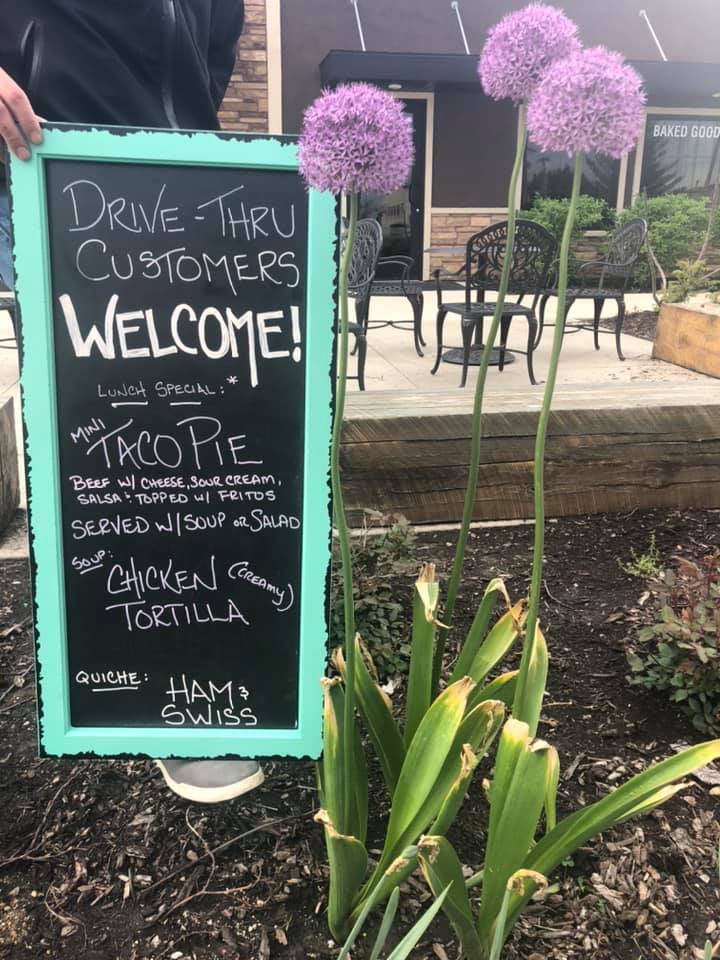 DRIVE-THRU
CUSTOMERS
WELCOME!
LUNCH SPECIAL:*
MINI
TACO PIE
BEEF W/ CHEESE, SOUR CREAM,
SALSA & TOPPED W/ FRITOS
SERVED W/ SOUP OR SALAD
SOUP:
CHICKEN (CREAMY)
TORTILLA
QUICHE: HAM &
SWISS
BAKED GOOD